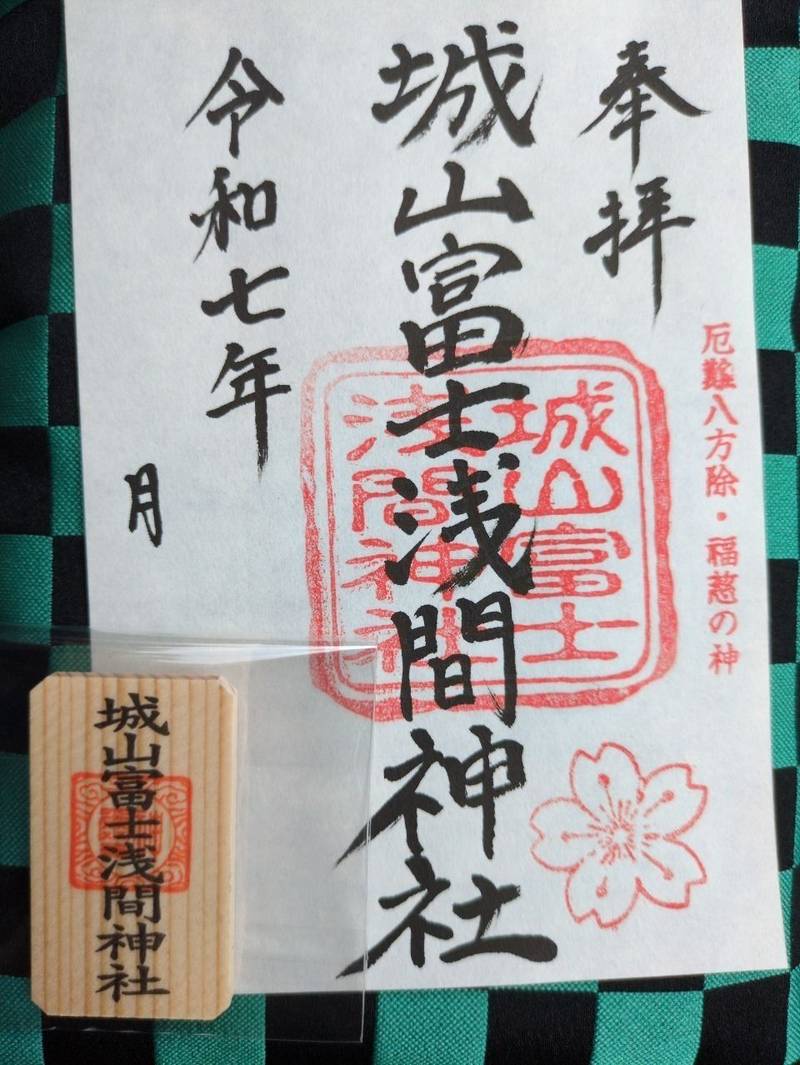 厄難八方除・福慈の神
奉拝
城山富士浅間神社
城山富士
浅間神社
令和七年
月
城山富士浅間神社